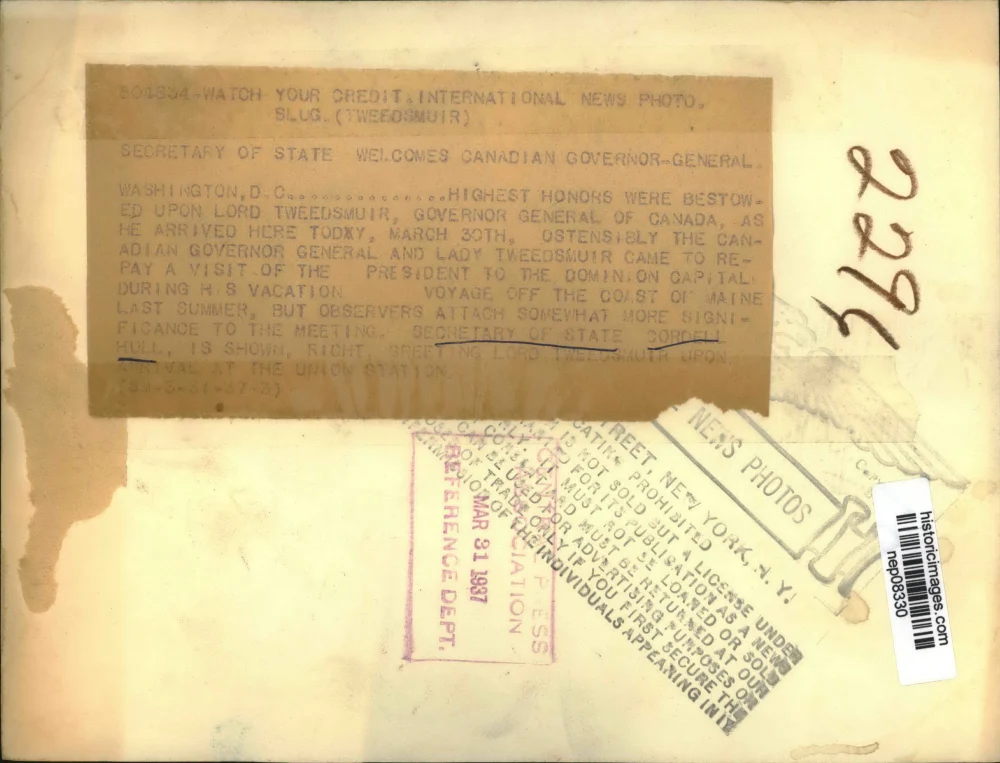 504834-WATCH YOUR CREDIT.INTERNATIONAL NEWS PHOTO.
SLUG (TWEEDSMUIR)
SECRETARY OF STATE WELCOMES CANADIAN GOVERNOR-GENERAL.
WASHINGTON,D.C..................HIGHEST HONORS WERE BESTOW-
ED UPON LORD TWEEDSMUIR, GOVERNOR GENERAL OF CANADA, AS
HE ARRIVED HERE TODXY, MARCH 30TH, OSTENSIBLY THE CAN-
ADIAN GOVERNOR GENERAL AND LADY TWEEDSMUIR CAME TO RE-
PAY A VISIT OF THE PRESIDENT TO THE DOMIN.ON CAPITAL
DURING H S VACATION VOYAGE OFF THE COAST OF MAINE
LAST SUMMER, BUT OBSERVERS ATTACH SOMEWHAT MORE SIGNI-
FICANCE TO THE MEETING. SECRETARY OF STATE CORDELL
HULL, IS SHOWN, RIGHT, GREETING LORD TWEEDSMUIR UPON
ARRIVAL AT THE UNION STATION
2294
NEWS PHOTOS
STREET, NEW YORK, N. Y.
PROHIBITED
IS NOT SOLD BUT A LICENSE UNDER
FOR ITS PUBLICATION AS A NEWS
MUST NOT BE LOANED OR SOLD
AND MUST BE RETURNED AT OUR
CAN BE USED FOR ADVERTISING PURPOSES OR
OF TRADE ONLY IF YOU FIRST SECURE THE
OF THE INDIVIDUALS APPEARING IN IT
PRESS
ASSOCIATION
MAR 31 1937
REFERENCE DEPT.
historicimages.com
nep08330